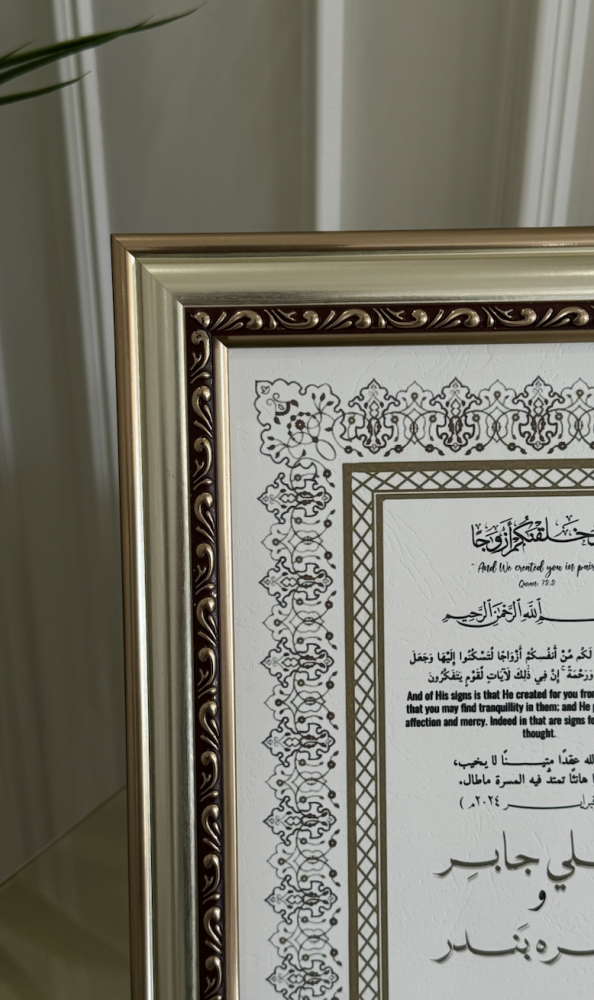 وَخَلَقْنَٰكُمْ أَزْوَٰجًا
"And We created you in pair
Quran: 78:8
ـمِ ٱللَّهِ ٱلرَّحْمَٰنِ ٱلرَّحِيمِ
لَكُم مِّنْ أَنفُسِكُمْ أَزْوَاجًا لِّتَسْكُنُوا إِلَيْهَا وَجَعَلَ
وَرَحْمَةً ۚ إِنَّ فِي ذَٰلِكَ لَآيَاتٍ لِّقَوْمٍ يَتَفَكَّرُونَ
And of His signs is that He created for you from
that you may find tranquillity in them; and He p
affection and mercy. Indeed in that are signs fo
thought.
لله عقدًا متيـــنًا لا يخيب،
هانئًا تمتدُّ فيه المسرة ماطال.
فبرايــــر ٢٠٢٤م )
ـلي جابـر
و
ـره بَندر